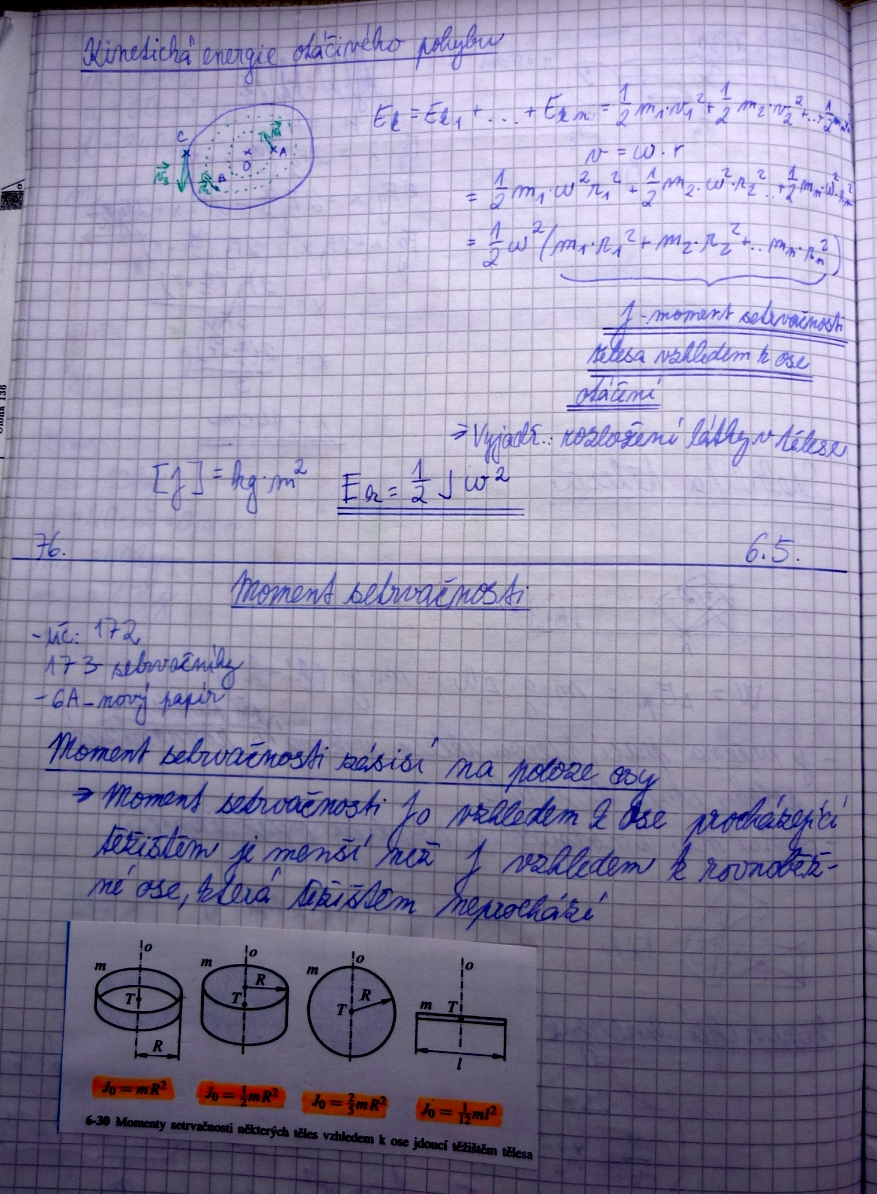 Kinetická energie otáčivého pohybu
E_k = E_k1 + ... + E_kn = 1/2 m_1·v_1² + 1/2 m_2·v_2² + ... + 1/2 m_n
v = ω·r
= 1/2 m_1·ω² r_1² + 1/2 m_2·ω²·r_2² .. + 1/2 m_n·ω²·r_n²
= 1/2 ω² (m_1·r_1² + m_2·r_2² + ... m_n·r_n²)
C
A
O
B
v_3
J - moment setrvačnosti
tělesa vzhledem k ose
otáčení
⇒ Vyjadř.: rozložení látky v tělese
[J] = kg·m²
E_k = 1/2 J ω²
76. 6.5.
Moment setrvačnosti
- uč: 172
173 setrvačníky
- 6A - nový papír
Moment setrvačnosti závisí na poloze osy
→ Moment setrvačnosti J_0 vzhledem k ose procházející
těžištěm je menší než J vzhledem k rovnoběž-
né ose, která těžištěm neprochází
m o T R
m o R T
m o R T
o m T l
J₀ = mR²
J₀ = 1/2 mR²
J₀ = 2/5 mR²
J₀ = 1/12 ml²
6-30 Momenty setrvačnosti některých těles vzhledem k ose jdoucí těžištěm tělesa